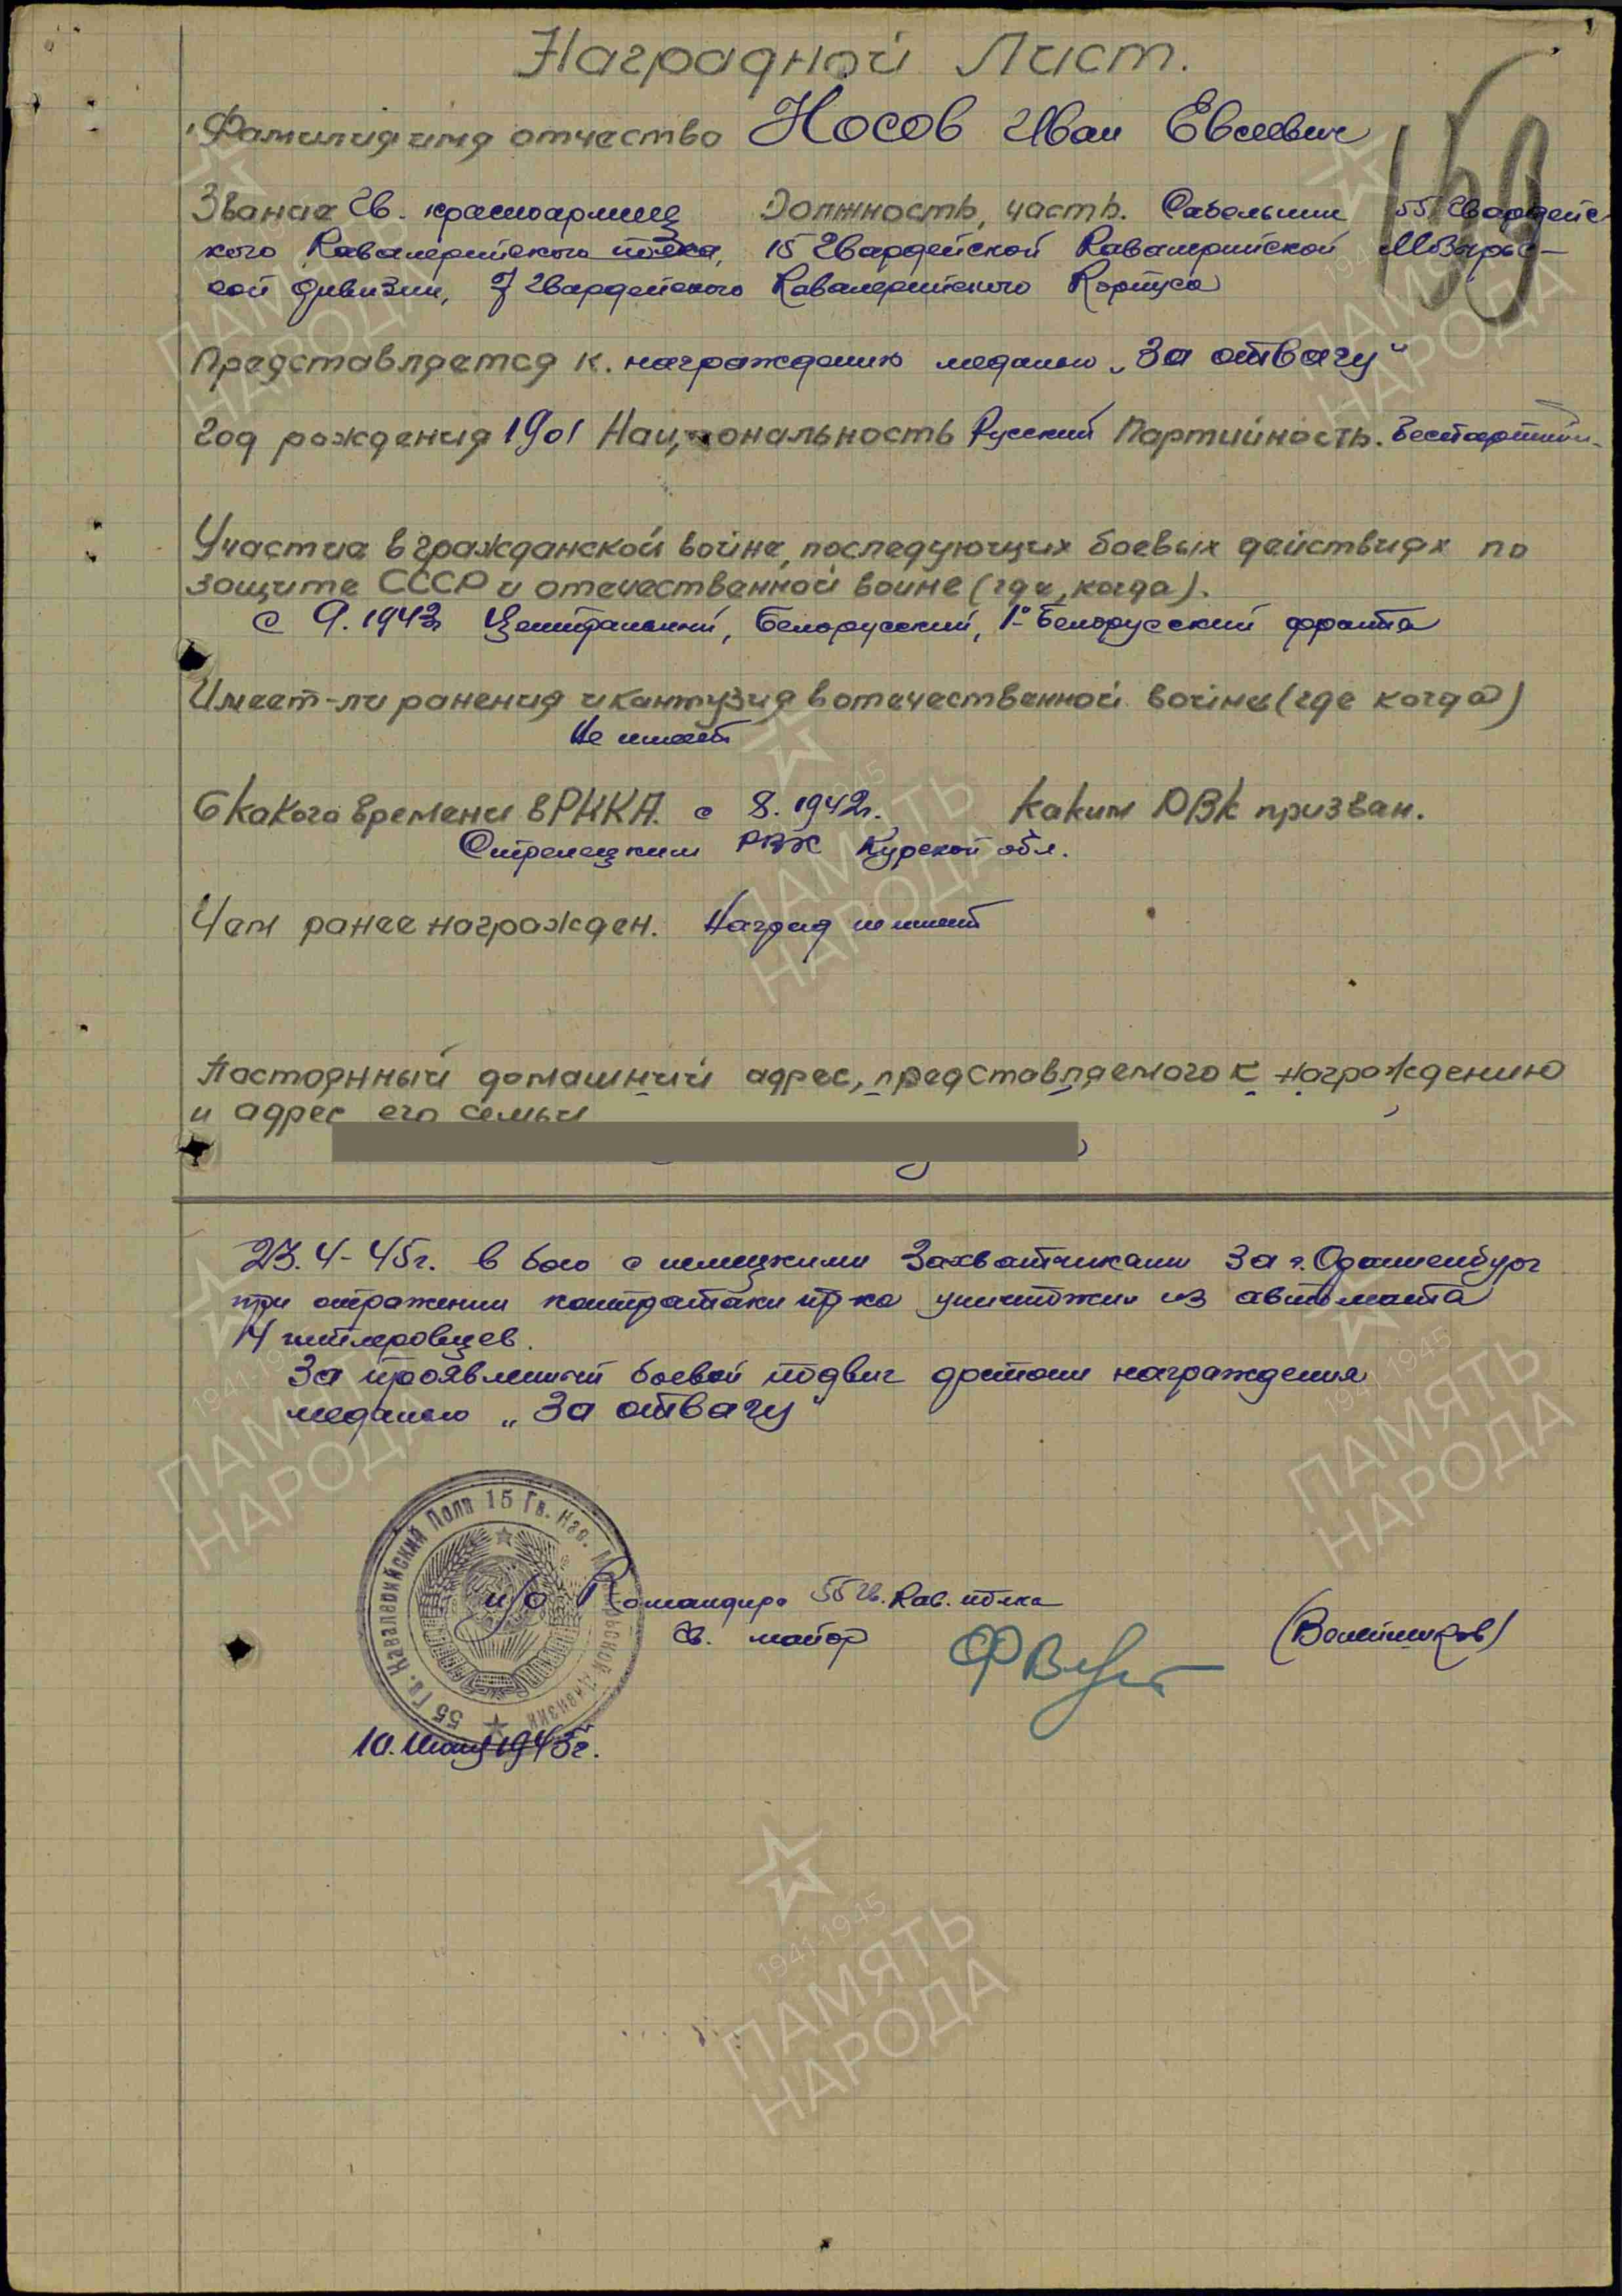 Наградной Лист.
Фамилия имя отчество Носов Иван Евсеевич
159
Звание Гв. красноармеец Должность, часть. Сабельник 55 Гвардейс-
кого Кавалерийского полка, 15 Гвардейской Кавалерийской Мозырьс-
кой дивизии, 7 Гвардейского Кавалерийского Корпуса
Представляется к. награждению медалью „За отвагу“
Год рождения 1901 Национальность Русский Партийность. Беспартийн.
Участие в гражданской войне, последующих боевых действиях по
защите СССР и отечественной воине (где, когда).
с 9. 1943г Центральный, Белорусский, 1й Белорусский фронта
Имеет-ли ранения и кантузия в отечественной войне (где когда)
Не имеет
С какого времени в РККА. с 8. 1942г. Каким РВК призван.
Стрелецким РВК Курской обл.
Чем ранее награжден. Наград не имеет
Постоянный домашний адрес, представляемого к награждению
и адрес его семьи
23.4-45г. в бою с немецкими захватчиками за г. Ораниенбург
при отражении контратаки пр-ка уничтожил из автомата
14 гитлеровцев.
За проявленный боевой подвиг достоин награждения
медалью „За отвагу“
55 Гв. Кавалерийский Полк 15 Гв. Кав. Мозырьской Дивизии
и/о Командира 55 Гв. Кав. полка
Гв. майор
10. 1945г.
ПАМЯТЬ
НАРОДА
1941-1945
ПАМЯТЬ
НАРОДА
1941-1945
ПАМЯТЬ
НАРОДА
1941-1945
ПАМЯТЬ
НАРОДА
1941-1945
ПАМЯТЬ
НАРОДА
1941-1945
ПАМЯТЬ
НАРОДА